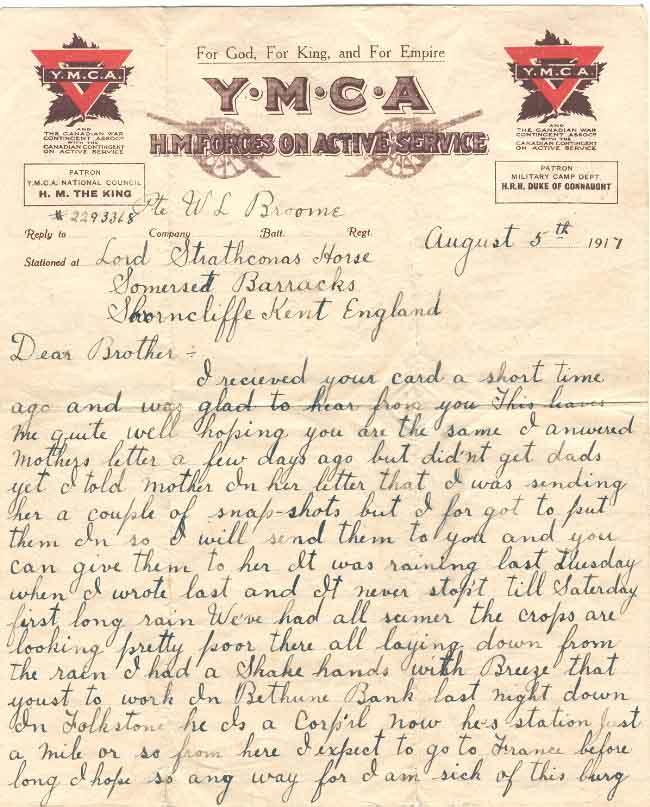 For God, For King, and For Empire
Y·M·C·A
H.M. FORCES ON ACTIVE SERVICE
Y.M.C.A.
AND
THE CANADIAN WAR
CONTINGENT ASSOCN
WITH THE
CANADIAN CONTINGENT
ON ACTIVE SERVICE
PATRON
Y.M.C.A. NATIONAL COUNCIL
H. M. THE KING
Y.M.C.A.
AND
THE CANADIAN WAR
CONTINGENT ASSOCN
WITH THE
CANADIAN CONTINGENT
ON ACTIVE SERVICE
PATRON
MILITARY CAMP DEPT.
H.R.H. DUKE OF CONNAUGHT
# 2293368 Pte W L Broome
Reply to Company Batt. Regt.
August 5th 1917
Stationed at Lord Strathconas Horse
Somerset Barracks
Shorncliffe Kent England
Dear Brother :-
I recieved your card a short time
ago and was glad to hear from you This leaves
me quite well hoping you are the same I anwered
Mothers letter a few days ago but didn't get dads
yet I told Mother In her letter that I was sending
her a couple of snap-shots but I for got to put
them In so I will send them to you and you
can give them to her It was raining last Tuesday
when I wrote last and It never stop't till Saterday
first long rain We've had all sumer the crops are
looking pretty poor there all laying down from
the rain I had a Shake hands with Breeze that
youst to work In Bethune Bank last night down
In Folkstone he Is a Corp'ril now he-s station just
a mile or so from here I expect to go to France before
long I hope so any way for I am sick of this burg